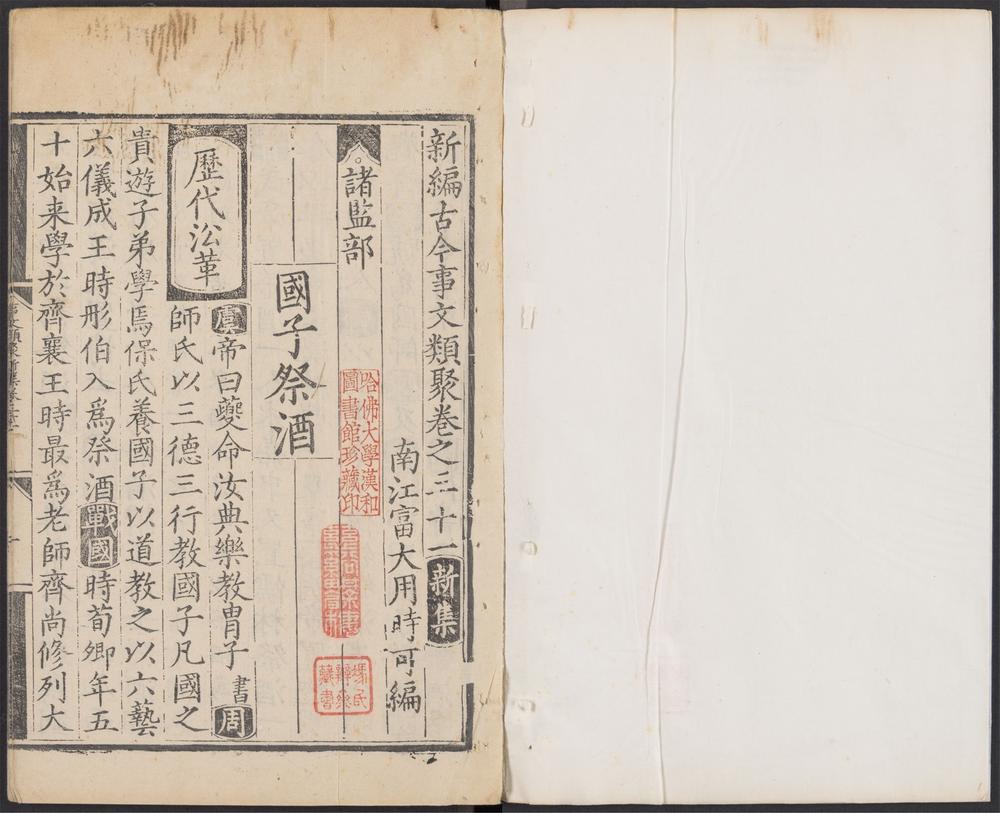 新編古今事文類聚卷之三十一 新集
南江富大用時可編
諸監部
哈佛大學漢和
圖書館珍藏印
國子祭酒
歷代㳂革
虞帝曰夔命汝典樂教胄子書周
師氏以三德三行教國子凡國之
貴遊子弟學焉保氏養國子以道教之以六藝
六儀成王時彤伯入爲祭酒戰國時荀卿年五
十始来學於齊襄王時最爲老師齊尚修列大